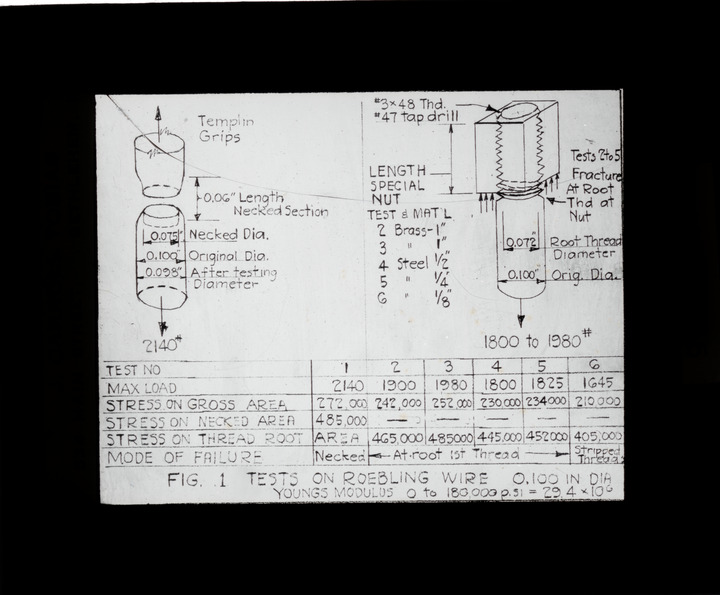 Templin
Grips
0.06" Length
Necked Section
0.075" Necked Dia.
0.100" Original Dia.
0.098" After testing
Diameter
2140#
#3×48 Thd.
#47 tap drill
LENGTH
SPECIAL
NUT
TEST & MAT'L
2 Brass-1"
3 " 1"
4 Steel 1/2"
5 " 1/4"
6 " 1/8"
Tests 2to5
Fracture
At Root
Thd at
Nut
0.072" Root Thread
Diameter
0.100" Orig. Dia.
1800 to 1980#
TEST NO 1 2 3 4 5 6
MAX LOAD 2140 1900 1980 1800 1825 1645
STRESS ON GROSS AREA 272,000 242,000 252,000 230,000 234000 210,000
STRESS ON NECKED AREA 485,000 — — — — —
STRESS ON THREAD ROOT AREA 465,000 485000 445,000 452000 405,000
MODE OF FAILURE Necked At root 1st Thread Stripped Threads
FIG. 1 TESTS ON ROEBLING WIRE 0.100 IN DIA
YOUNGS MODULUS 0 to 180,000 p.si = 29.4 ×10⁶